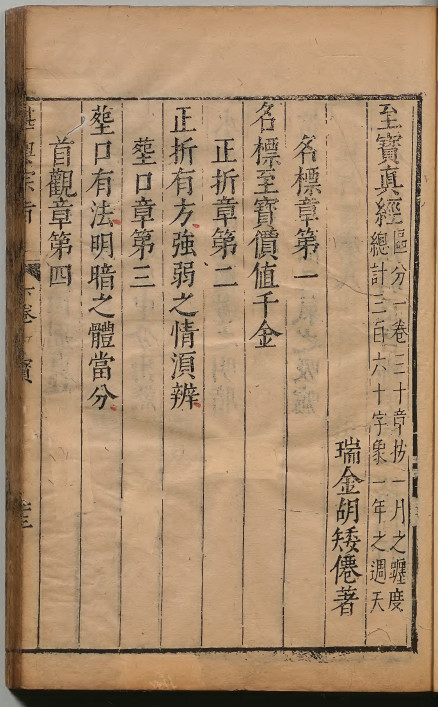 至寶真經 區分一卷三十章抄一月之躔度
總計三百六十字象一年之週天
瑞金胡矮僊著
名標章第一
名標至寶價值千金
正折章第二
正折有方強弱之情湏辨
塟口章第三
塟口有法明暗之體當分
首觀章第四